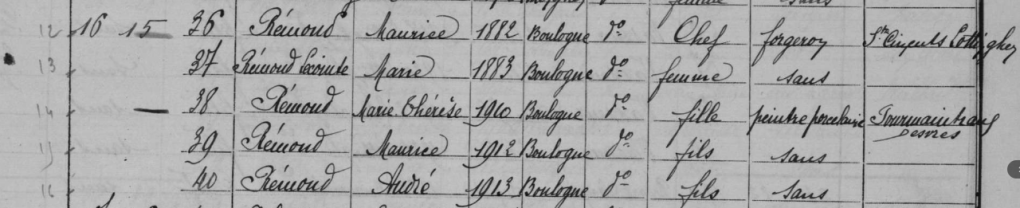 12 16 15 36 Rémond Maurice 1882 Boulogne do Chef forgeron Sté Ciments
13 37 Rémond Lecointe Marie 1883 Boulogne do femme sans
14 — 38 Rémond Marie Thérèse 1910 Boulogne do fille peintre porcelaine Fourmaintraux
Desvres
15 39 Rémond Maurice 1912 Boulogne do fils sans
16 40 Rémond André 1913 Boulogne do fils sans